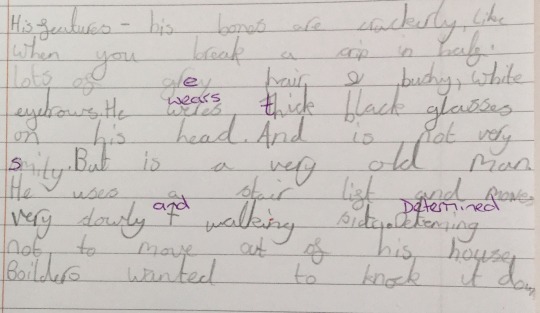 His features - his bones are crackerly, like
when you break a crip in half.
lots of grey hair & bushy, white
eyebrows. He weres wears thick black glasses
on his head. And is not very
smily. But is a very old man
He uses a stair list and moves
very slowly + and walking Determined
not to move out of his house,
Boilders wanted to knock it down